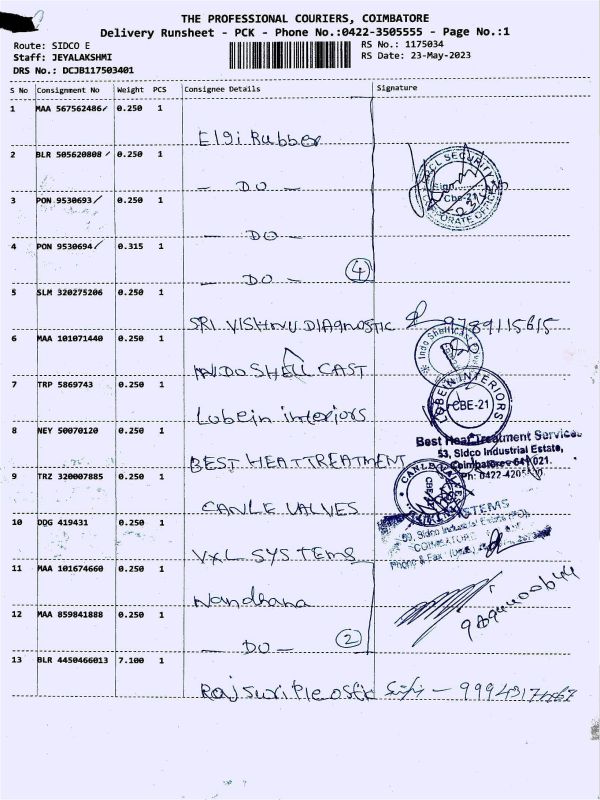 THE PROFESSIONAL COURIERS, COIMBATORE
Delivery Runsheet - PCK - Phone No.:0422-3505555 - Page No.:1
Route: SIDCO E
RS No.: 1175034
Staff: JEYALAKSHMI
RS Date: 23-May-2023
DRS No.: DCJB117503401
S No Consignment No Weight PCS Consignee Details Signature
1 MAA 567562486 0.250 1
Elgi Rubber
2 BLR 505620808 0.250 1
- DO -
3 PON 9530693 0.250 1
- DO -
4 PON 9530694 0.315 1
- DO - 4
5 SLM 320275206 0.250 1
SRI VISHNU DIAGNOSTIC 9789115615
6 MAA 101071440 0.250 1
INDO SHELL CAST
Indo Shell Cast
7 TRP 5869743 0.250 1
Lobein interiors
LOBEIN INTERIORS
CBE-21
8 NEY 50070120 0.250 1
BEST HEAT TREATMENT
Best Heat Treatment Services
53, Sidco Industrial Estate,
Coimbatore 641 021.
9 TRZ 320007885 0.250 1
CANLE VALVES
10 DQG 419431 0.250 1
VXL SYSTEMS
11 MAA 101674660 0.250 1
Nandhana
12 MAA 859841888 0.250 1
- DO - 2
13 BLR 4450466013 7.100 1